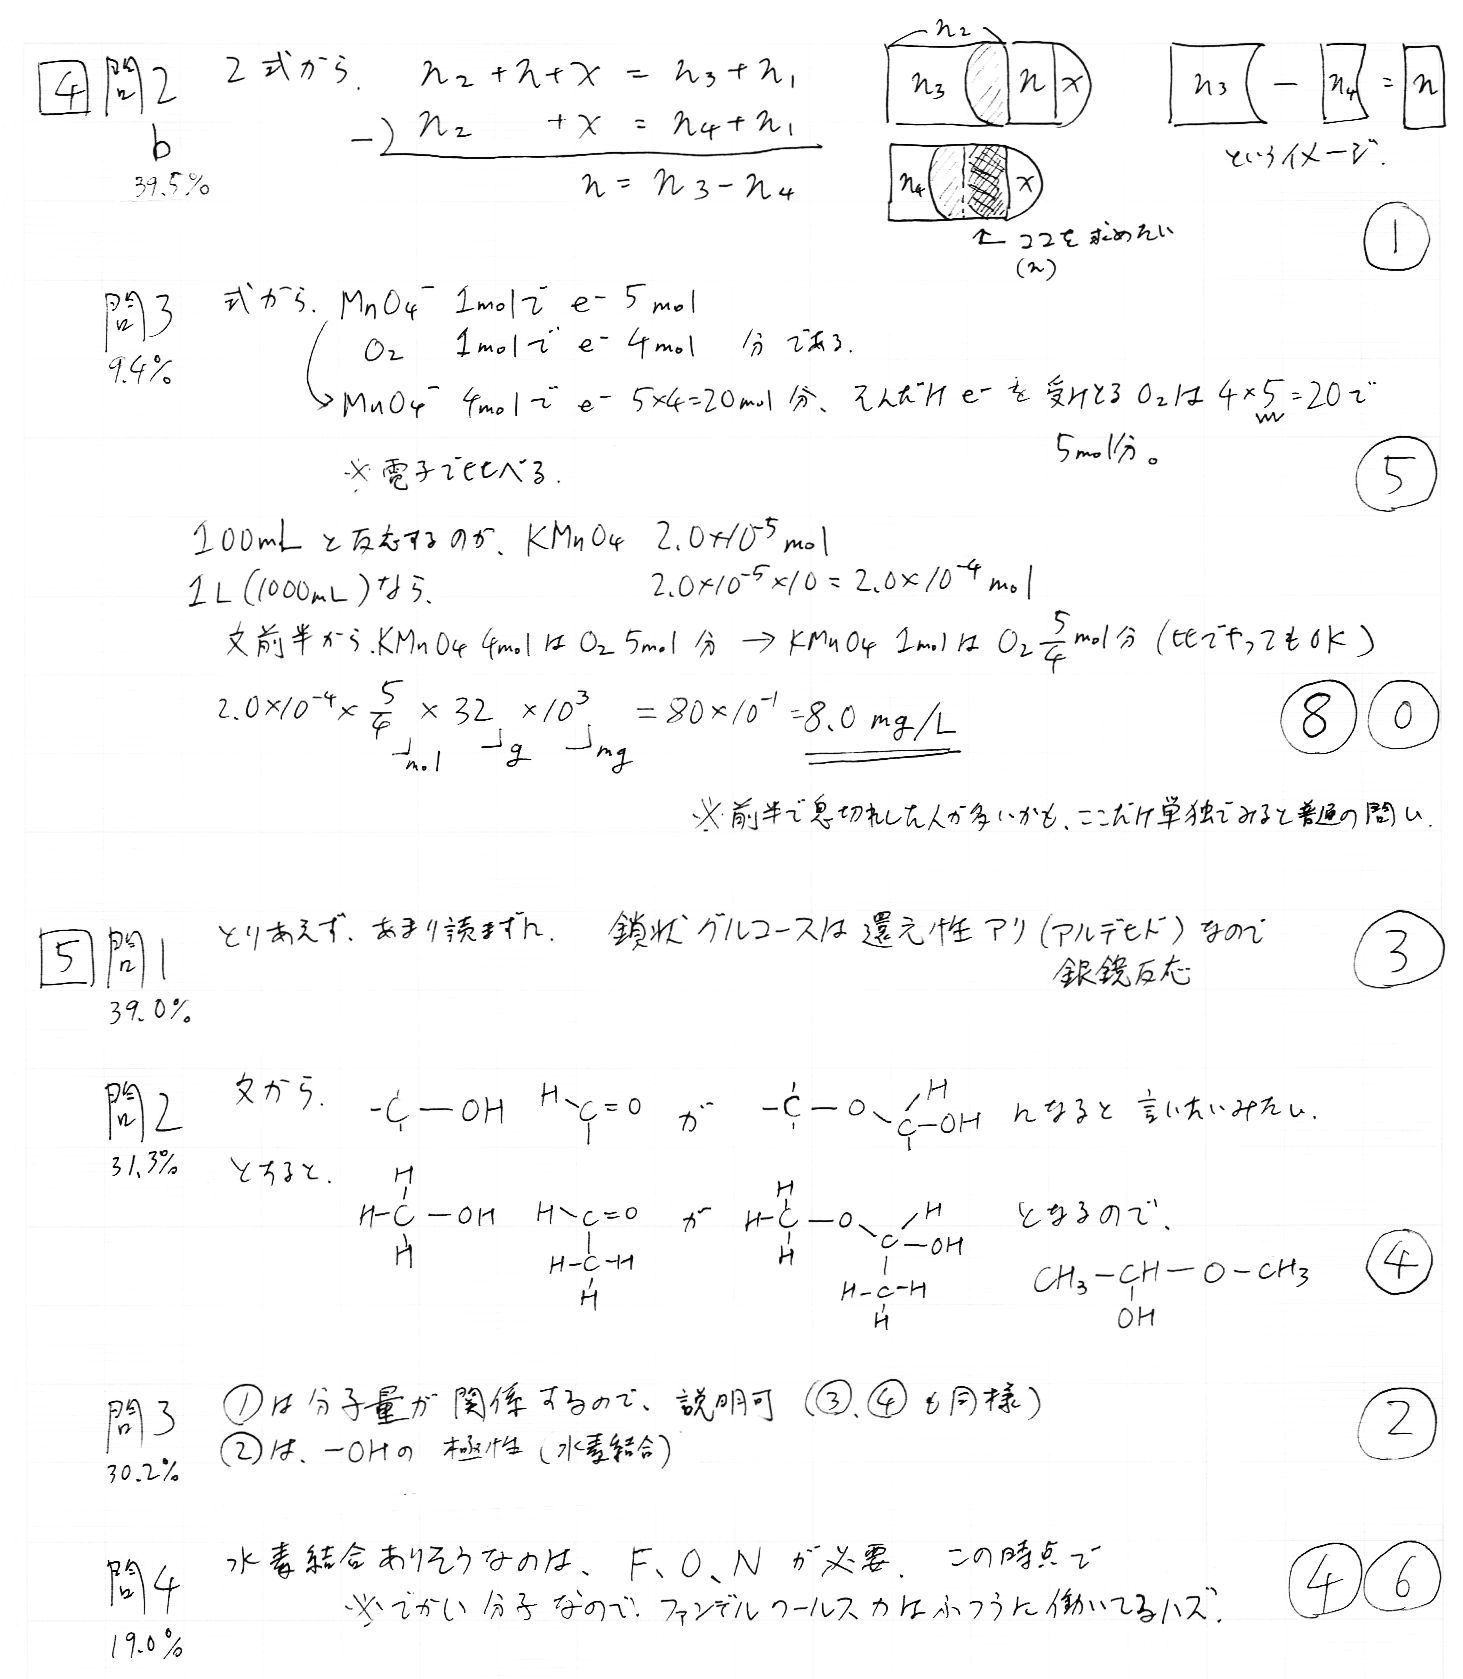 4 問2 2式から、 n₂+n+x = n₃+n₁
b -) n₂ +x = n₄+n₁
39.5% n = n₃-n₄
n₂
n₃ n x
n₄ x
n₃ - n₄ = n
というイメージ.
← ココを求めたい
(n)
①
問3 式から、MnO₄⁻ 1molで e⁻ 5mol
9.4% O₂ 1molで e⁻ 4mol 分である.
→MnO₄⁻ 4molで e⁻ 5×4=20mol分、そんだけe⁻を受けとるO₂は4×5=20で
5mol分。
※電子で比べる.
⑤
100mLと反応するのが、KMnO₄ 2.0×10⁻⁵mol
1L(1000mL)なら、 2.0×10⁻⁵×10=2.0×10⁻⁴mol
文前半から.KMnO₄ 4molはO₂ 5mol分 → KMnO₄ 1molは O₂ 5/4 mol分 (比でやってもOK)
2.0×10⁻⁴× 5/4 × 32 ×10³ =80×10⁻¹=8.0 mg/L
mol g mg
⑧ ⓪
※前半で息切れした人が多いかも、ここだけ単独でみると普通の問い.
5 問1 とりあえず、あまり読まずに. 鎖状グルコースは還元性アリ(アルデヒド)なので
39.0% 銀鏡反応
③
問2 文から. -C-OH H C=O が -C-O-C-OH H になると言いたいみたい.
31.3% とすると.
H H
H-C-OH H C=O が H-C-O-C-OH H となるので、
H H-C-H H H-C-H
H H
CH₃-CH-O-CH₃
OH
④
問3 ①は分子量が関係するので、説明可 (③、④も同様)
30.2% ②は、-OHの極性(水素結合)
②
問4 水素結合ありそうなのは、F、O、Nが必要. この時点で
19.0% ※でかい分子なので、ファンデルワールス力はふつうに働いてるハズ.
④ ⑥